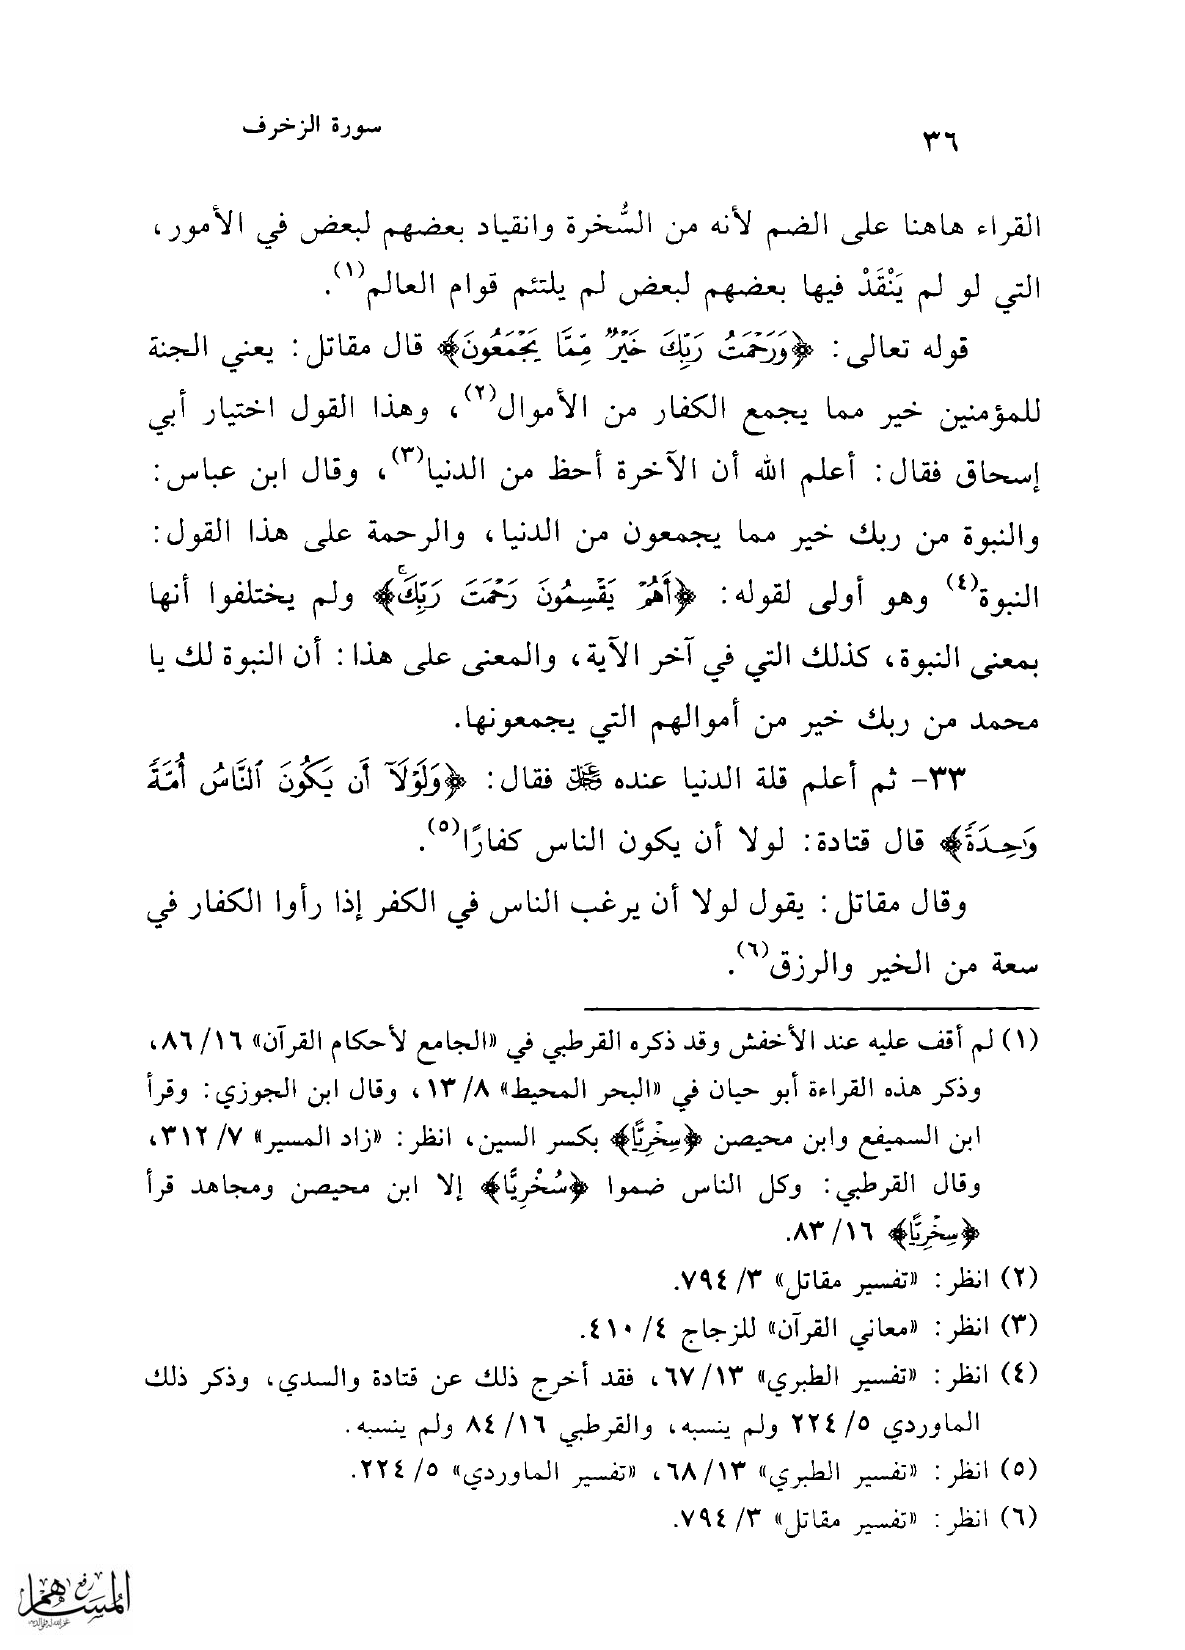 ٣٦
سورة الزخرف
القراء هاهنا على الضم لأنه من السُّخرة وانقياد بعضهم لبعض في الأمور،
التي لو لم يَنْقَدْ فيها بعضهم لبعض لم يلتئم قوام العالم(١).
قوله تعالى: ﴿وَرَحْمَتُ رَبِّكَ خَيْرٌ مِّمَّا يَجْمَعُونَ﴾ قال مقاتل: يعني الجنة
للمؤمنين خير مما يجمع الكفار من الأموال(٢)، وهذا القول اختيار أبي
إسحاق فقال: أعلم الله أن الآخرة أحظ من الدنيا(٣)، وقال ابن عباس:
والنبوة من ربك خير مما يجمعون من الدنيا، والرحمة على هذا القول:
النبوة(٤) وهو أولى لقوله: ﴿أَهُمْ يَقْسِمُونَ رَحْمَتَ رَبِّكَۚ﴾ ولم يختلفوا أنها
بمعنى النبوة، كذلك التي في آخر الآية، والمعنى على هذا: أن النبوة لك يا
محمد من ربك خير من أموالهم التي يجمعونها.
٣٣- ثم أعلم قلة الدنيا عنده ﷻ فقال: ﴿وَلَوْلَآ أَن يَكُونَ ٱلنَّاسُ أُمَّةً
وَٰحِدَةً﴾ قال قتادة: لولا أن يكون الناس كفارًا(٥).
وقال مقاتل: يقول لولا أن يرغب الناس في الكفر إذا رأوا الكفار في
سعة من الخير والرزق(٦).
(١) لم أقف عليه عند الأخفش وقد ذكره القرطبي في «الجامع لأحكام القرآن» ١٦/ ٨٦،
وذكر هذه القراءة أبو حيان في «البحر المحيط» ٨/ ١٣، وقال ابن الجوزي: وقرأ
ابن السميفع وابن محيصن ﴿سِخْرِيًّا﴾ بكسر السين، انظر: «زاد المسير» ٧/ ٣١٢،
وقال القرطبي: وكل الناس ضموا ﴿سُخْرِيًّا﴾ إلا ابن محيصن ومجاهد قرأ
﴿سِخْرِيًّا﴾ ١٦/ ٨٣.
(٢) انظر: «تفسير مقاتل» ٣/ ٧٩٤.
(٣) انظر: «معاني القرآن» للزجاج ٤/ ٤١٠.
(٤) انظر: «تفسير الطبري» ١٣/ ٦٧، فقد أخرج ذلك عن قتادة والسدي، وذكر ذلك
الماوردي ٥/ ٢٢٤ ولم ينسبه، والقرطبي ١٦/ ٨٤ ولم ينسبه.
(٥) انظر: «تفسير الطبري» ١٣/ ٦٨، «تفسير الماوردي» ٥/ ٢٢٤.
(٦) انظر: «تفسير مقاتل» ٣/ ٧٩٤.